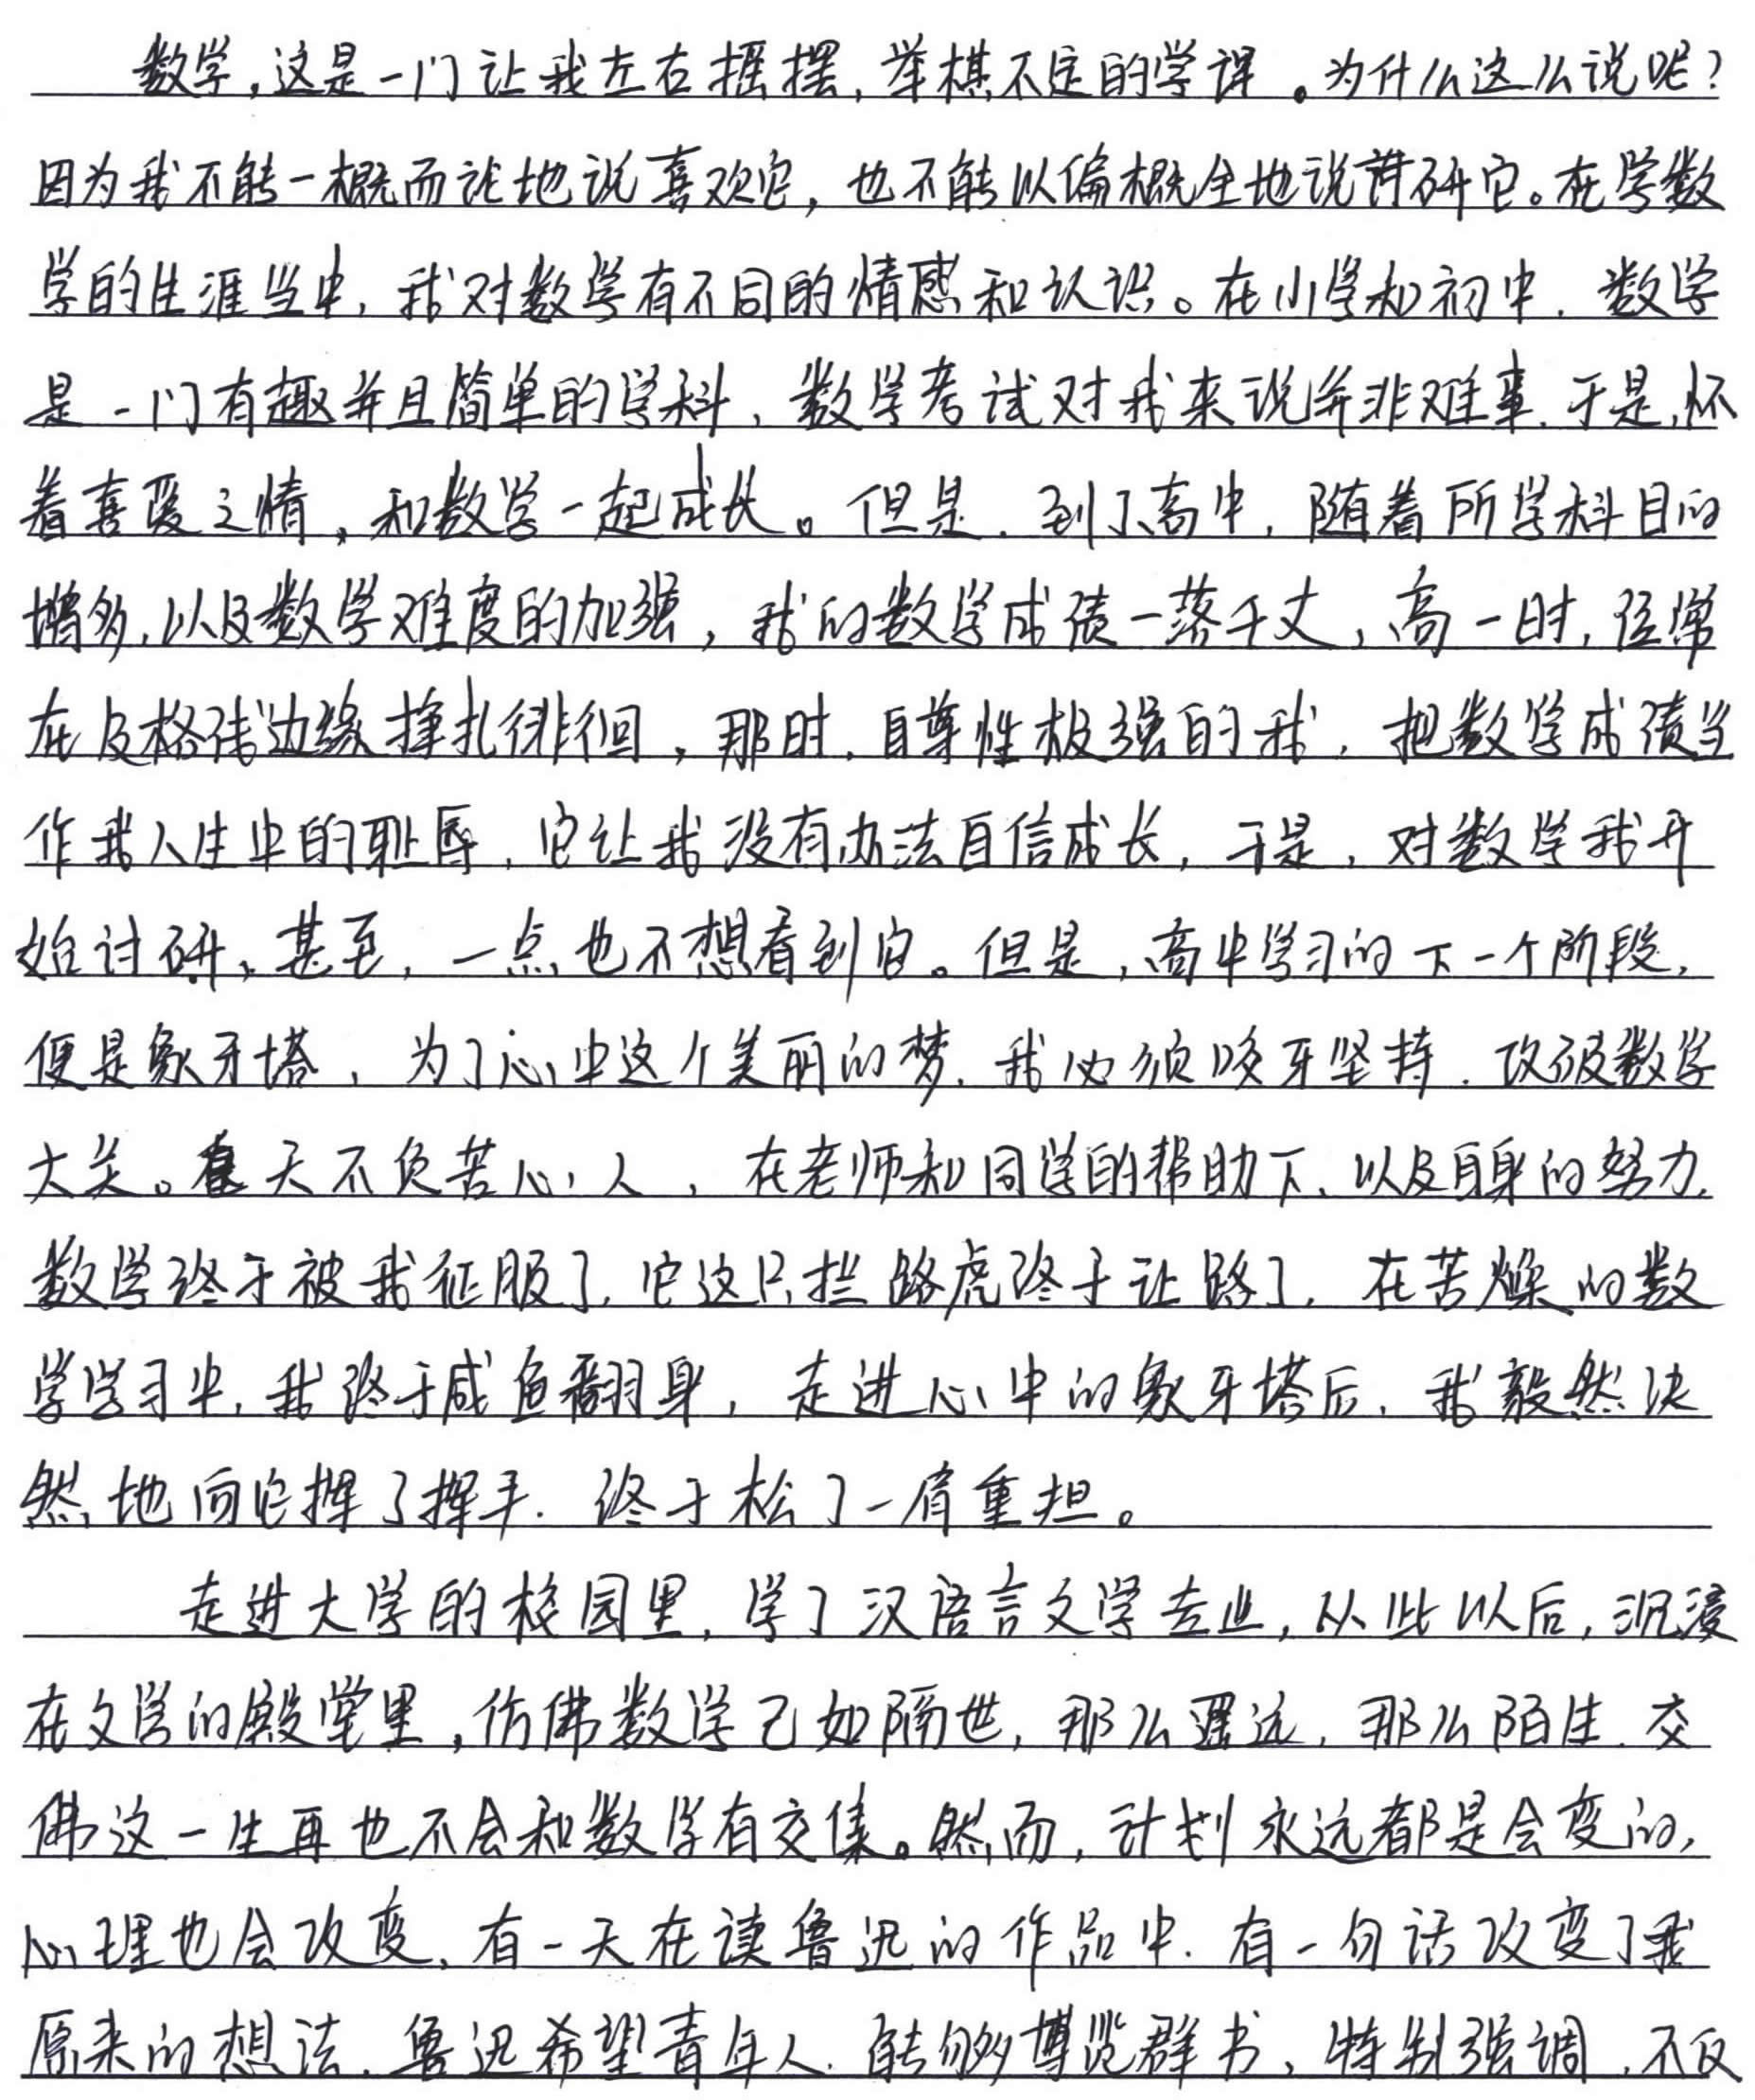 数学，这是一门让我左右摇摆，举棋不定的学课。为什么这么说呢？
因为我不能一概而论地说喜欢它，也不能以偏概全地说讨研它。在学数
学的生涯当中，我对数学有不同的情感和认识。在小学和初中，数学
是一门有趣并且简单的学科，数学考试对我来说并非难事，于是，怀
着喜爱之情，和数学一起成长。但是，到了高中，随着所学科目的
增多，以及数学难度的加强，我的数学成绩一落千丈，高一时，经常
在及格线边缘挣扎徘徊，那时，自尊性极强的我，把数学成绩当
作我人生中的耻辱，它让我没有办法自信成长，于是，对数学我开
始讨研，甚至，一点也不想看到它。但是，高中学习的下一个阶段，
便是象牙塔，为了心中这个美丽的梦，我必须咬牙坚持，攻破数学
大关。天不负苦心人，在老师和同学的帮助下，以及自身的努力，
数学终于被我征服了，它这只拦路虎终于让路了，在苦燥的数
学学习中，我终于咸鱼翻身，走进心中的象牙塔后，我毅然决
然地向它挥了挥手，终于松了一肩重担。
走进大学的校园里，学了汉语言文学专业，从此以后，沉浸
在文学的殿堂里，仿佛数学已如隔世，那么遥远，那么陌生，仿
佛这一生再也不会和数学有交集。然而，计划永远都是会变的，
心理也会改变，有一天在读鲁迅的作品中，有一句话改变了我
原来的想法，鲁迅希望青年人，能够博览群书，特别强调，不仅